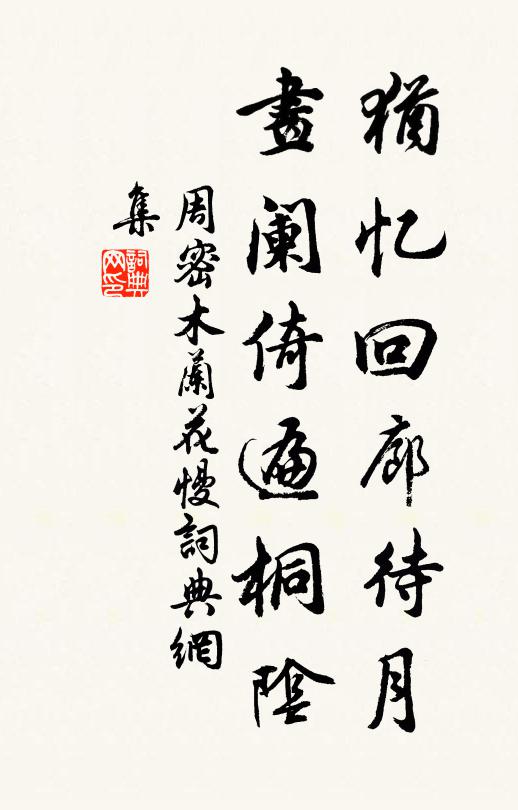 猶忆回廊待月
畫阑倚遍桐陰
周密木蘭花慢詞典網
集
詞典网印